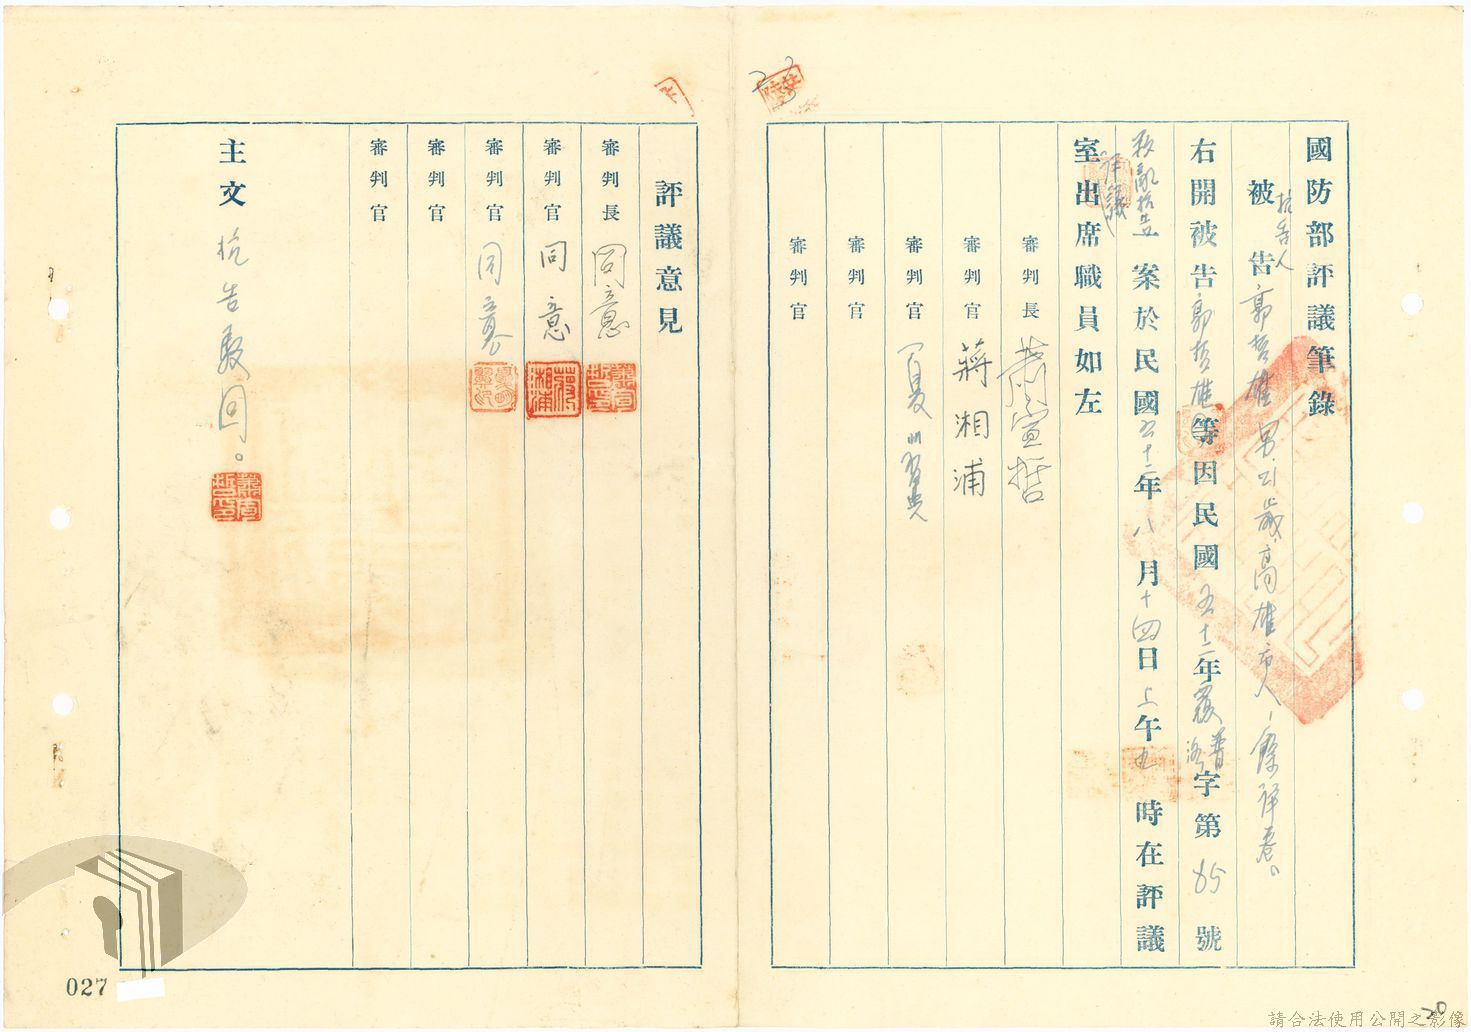 國防部評議筆錄
抗告人
被告郭哲雄男21歲高雄市人,餘詳卷。
右開被告郭哲雄等因民國五十二年覆普字第85號
叛亂抗告一案於民國五十二年八月十四日上午九時在評議
評議
室出席職員如左
審判長蕭宣哲
審判官蔣湘浦
審判官
審判官
審判官
評議意見
審判長同意
審判官同意
蔣湘浦
審判官同意
審判官
審判官
主文抗告駁回。
027
20
請合法使用公開之影像